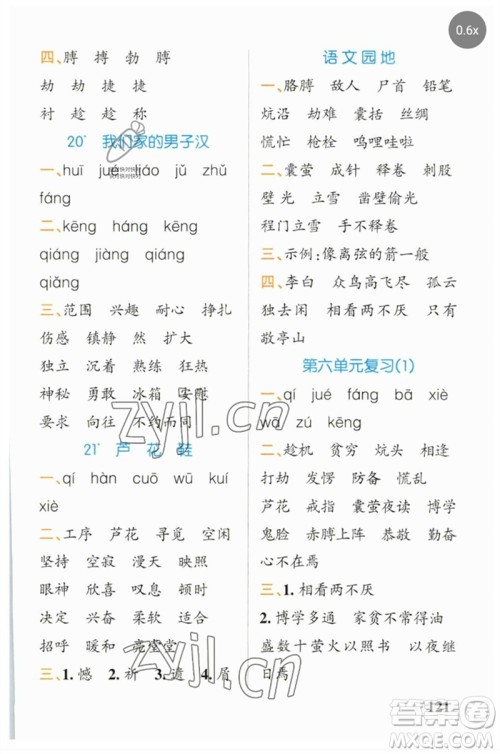 0.6x
四、膊 搏 勃 膊
劫 劫 捷 捷
衬 趁 趁 称
20* 我们家的男子汉
一、huī jué jiáo jǔ zhǔ
fáng
二、kēng háng kēng
qiáng jiàng qiáng
qiǎng
三、范围 兴趣 耐心 挣扎
伤感 镇静 然 扩大
独立 沉着 熟练 狂热
神秘 勇敢 冰箱 安慰
要求 向往 不约而同
21* 芦花鞋
一、qí chì zào wū kuí
xiè
二、工序 芦花 寻觅 空闲
坚持 空寂 漫天 映照
眼神 欣喜 叹息 顿时
决定 兴奋 柔软 适合
招呼 暖和 亮堂堂
三、1. 憾 2. 祈 3. 遗 4. 盾
语文园地
一、胳膊 敌人 尸首 铅笔
炕沿 劫难 囊括 丝绸
慌忙 枪栓 呜哩哇啦
二、囊萤 成针 释卷 刺股
壁光 立雪 凿壁偷光
程门立雪 手不释卷
三、示例:像离弦的箭一般
四、李白 众鸟高飞尽 孤云
独去闲 相看两不厌 只有
敬亭山
第六单元复习(1)
一、qí jué fáng bā xiè
wā zú kēng
二、趁机 贫穷 炕头 相逢
打劫 发愣 防备 慌乱
芦花 囊萤夜读 博学
鬼脸 赤膊上阵 恭敬 勤奋
心不在焉
三、1. 相看两不厌
2. 博学多通 家贫不常得油
盛数十萤火以照书 以夜继
日焉
121
zyjl.cn
zyjl.cn
答案圈
MXQE.COM